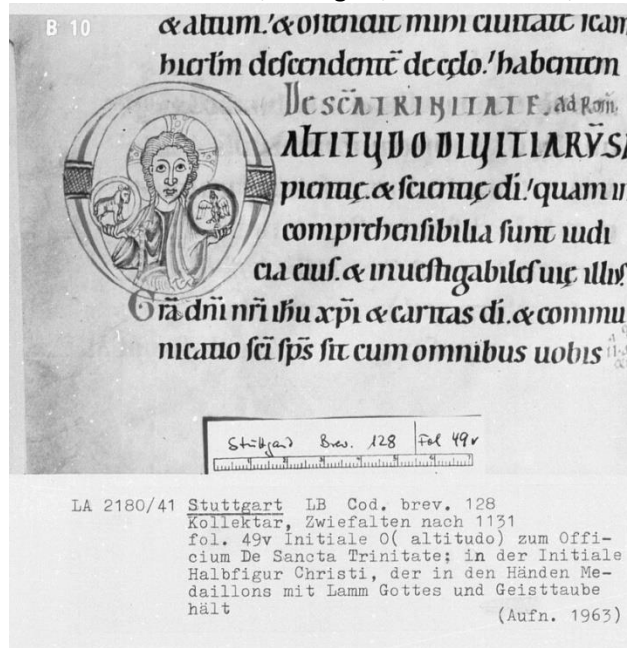 B 10
& altum. & ostendit mihi ciuitatē scam
hierlm̄ descendentē de cęlo. habentem
De SCA TRINITATE. ad Rom.
ALTITUDO DIUITIARU SA
pientię. & scientię di. quam in
comprehensibilia sunt iudi
cia eius. & inuestigabiles uię illius
Gra dñi nr̄i ihu xp̄i & caritas di. & commu
nicatio sc̄i sp̄s sit cum omnibus uobis
Stuttgard Brev. 128 Fol 49v
LA 2180/41 Stuttgart LB Cod. brev. 128
Kollektar, Zwiefalten nach 1131
fol. 49v Initiale O( altitudo) zum Offi-
cium De Sancta Trinitate; in der Initiale
Halbfigur Christi, der in den Händen Me-
daillons mit Lamm Gottes und Geisttaube
hält
(Aufn. 1963)